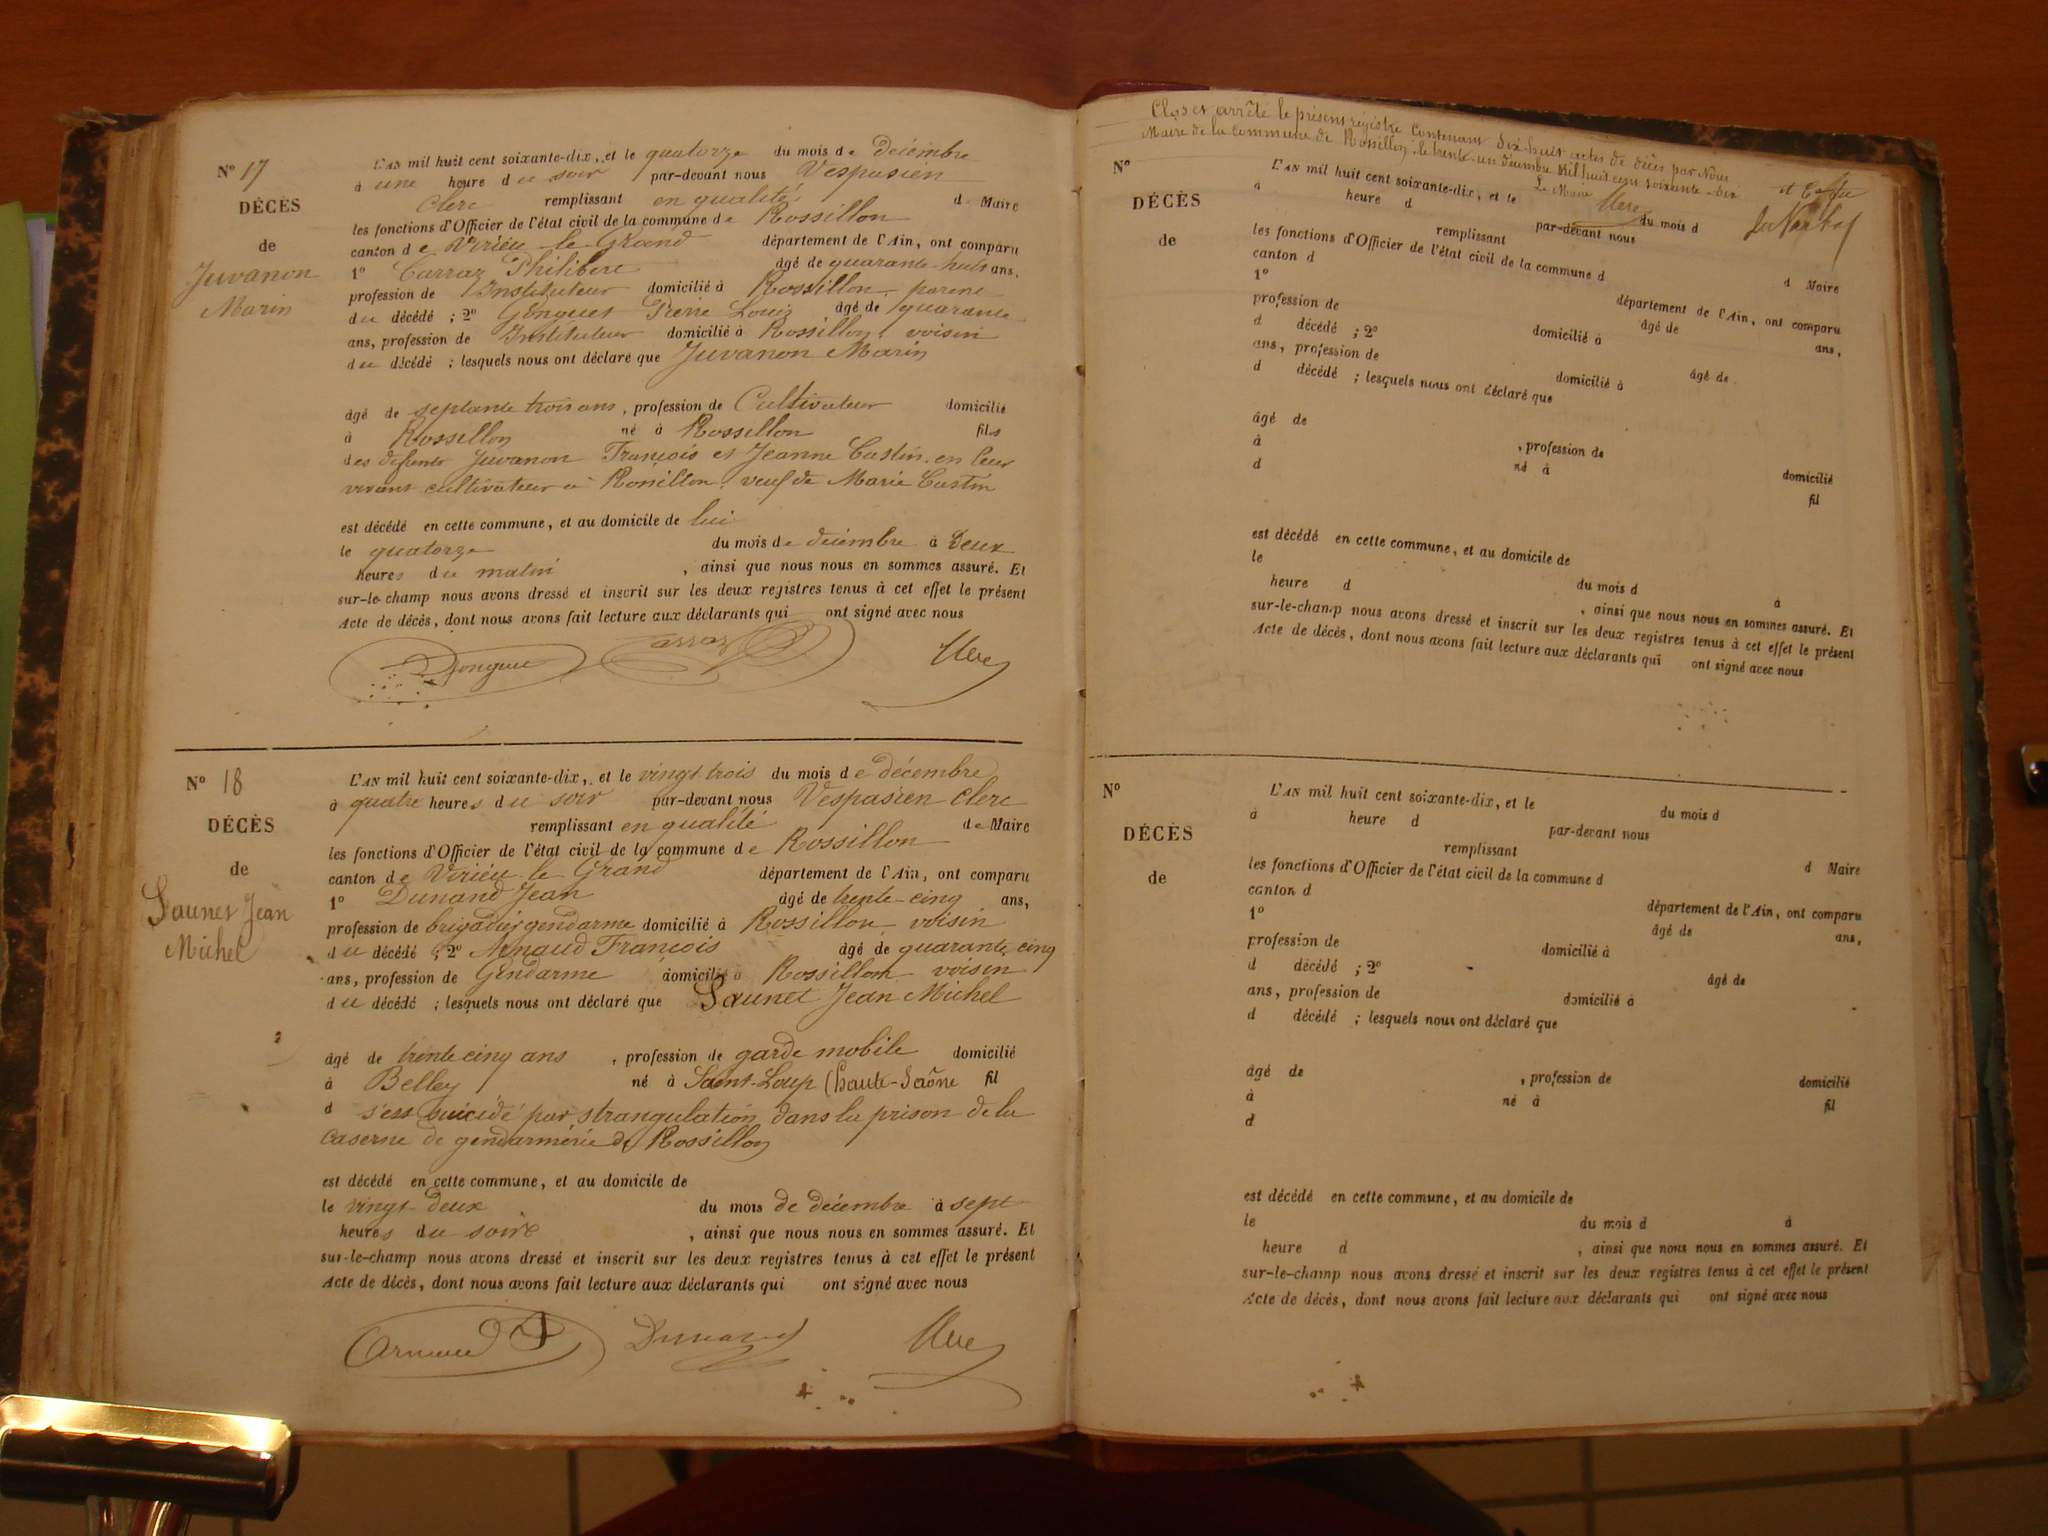 N° 17
DÉCÈS
de
Juvanon
Marin
L'AN mil huit cent soixante-dix, et le quatorze du mois de décembre
à une heure du soir par-devant nous Vespasien
Clerc remplissant en qualité de Maire
les fonctions d'Officier de l'état civil de la commune de Rossillon
canton de Virieu-le-Grand département de l'Ain, ont comparu
1° Carraz Philibert âgé de quarante-huit ans,
profession de Instituteur domicilié à Rossillon parent
du décédé ; 2° Pierre Louis âgé de quarante
ans, profession de Instituteur domicilié à Rossillon, voisin
du décédé ; lesquels nous ont déclaré que Juvanon Marin
âgé de septante trois ans, profession de Cultivateur domicilié
à Rossillon né à Rossillon fils
des défunts Juvanon François et Jeanne Custin en leur
vivant cultivateur à Rossillon veuf de Marie Custin
est décédé en cette commune, et au domicile de lui
le quatorze du mois de décembre à Deux
heures du matin, ainsi que nous nous en sommes assuré. Et
sur-le-champ nous avons dressé et inscrit sur les deux registres tenus à cet effet le présent
Acte de décès, dont nous avons fait lecture aux déclarants qui ont signé avec nous
Carraz Clerc
N° 18
DÉCÈS
de
Saunet Jean
Michel
L'AN mil huit cent soixante-dix, et le vingt trois du mois de décembre
à quatre heures du soir par-devant nous Vespasien Clerc
remplissant en qualité de Maire
les fonctions d'Officier de l'état civil de la commune de Rossillon
canton de Virieu le Grand département de l'Ain, ont comparu
1° Dunand Jean âgé de trente-cinq ans,
profession de brigadier gendarme domicilié à Rossillon voisin
du décédé ; 2° Arnaud François âgé de quarante cinq
ans, profession de Gendarme domicilié à Rossillon voisin
du décédé ; lesquels nous ont déclaré que Saunet Jean Michel
âgé de trente cinq ans, profession de garde mobile domicilié
à Belley né à Saint-Loup (haute-Saône fil
d s'est suicidé par strangulation dans la prison de la
caserne de gendarmerie de Rossillon
est décédé en cette commune, et au domicile de
le vingt-deux du mois de décembre à sept
heures du soire, ainsi que nous nous en sommes assuré. Et
sur-le-champ nous avons dressé et inscrit sur les deux registres tenus à cet effet le présent
Acte de décès, dont nous avons fait lecture aux déclarants qui ont signé avec nous
Arnaud Dunand Clerc
Clos et arrêté le présent régistre contenant dix-huit actes de décès par Nous
Maire de la commune de Rossillon, le trente-un décembre mil huit cent soixante-dix
Le Maire
Clerc
N°
DÉCÈS
de
L'AN mil huit cent soixante-dix, et le du mois d
à heure d par-devant nous
remplissant d Maire
les fonctions d'Officier de l'état civil de la commune d
canton d département de l'Ain, ont comparu
1° âgé de ans,
profession de domicilié à
d décédé ; 2° âgé de
ans, profession de domicilié à
d décédé ; lesquels nous ont déclaré que
âgé de , profession de domicilié
à né à fil
d
est décédé en cette commune, et au domicile de
le du mois d à
heure d , ainsi que nous nous en sommes assuré. Et
sur-le-champ nous avons dressé et inscrit sur les deux registres tenus à cet effet le présent
Acte de décès, dont nous avons fait lecture aux déclarants qui ont signé avec nous
N°
DÉCÈS
de
L'AN mil huit cent soixante-dix, et le du mois d
à heure d par-devant nous
remplissant d Maire
les fonctions d'Officier de l'état civil de la commune d
canton d département de l'Ain, ont comparu
1° âgé de ans,
profession de domicilié à
d décédé ; 2° âgé de
ans, profession de domicilié à
d décédé ; lesquels nous ont déclaré que
âgé de , profession de domicilié
à né à fil
d
est décédé en cette commune, et au domicile de
le du mois d à
heure d , ainsi que nous nous en sommes assuré. Et
sur-le-champ nous avons dressé et inscrit sur les deux registres tenus à cet effet le présent
Acte de décès, dont nous avons fait lecture aux déclarants qui ont signé avec nous